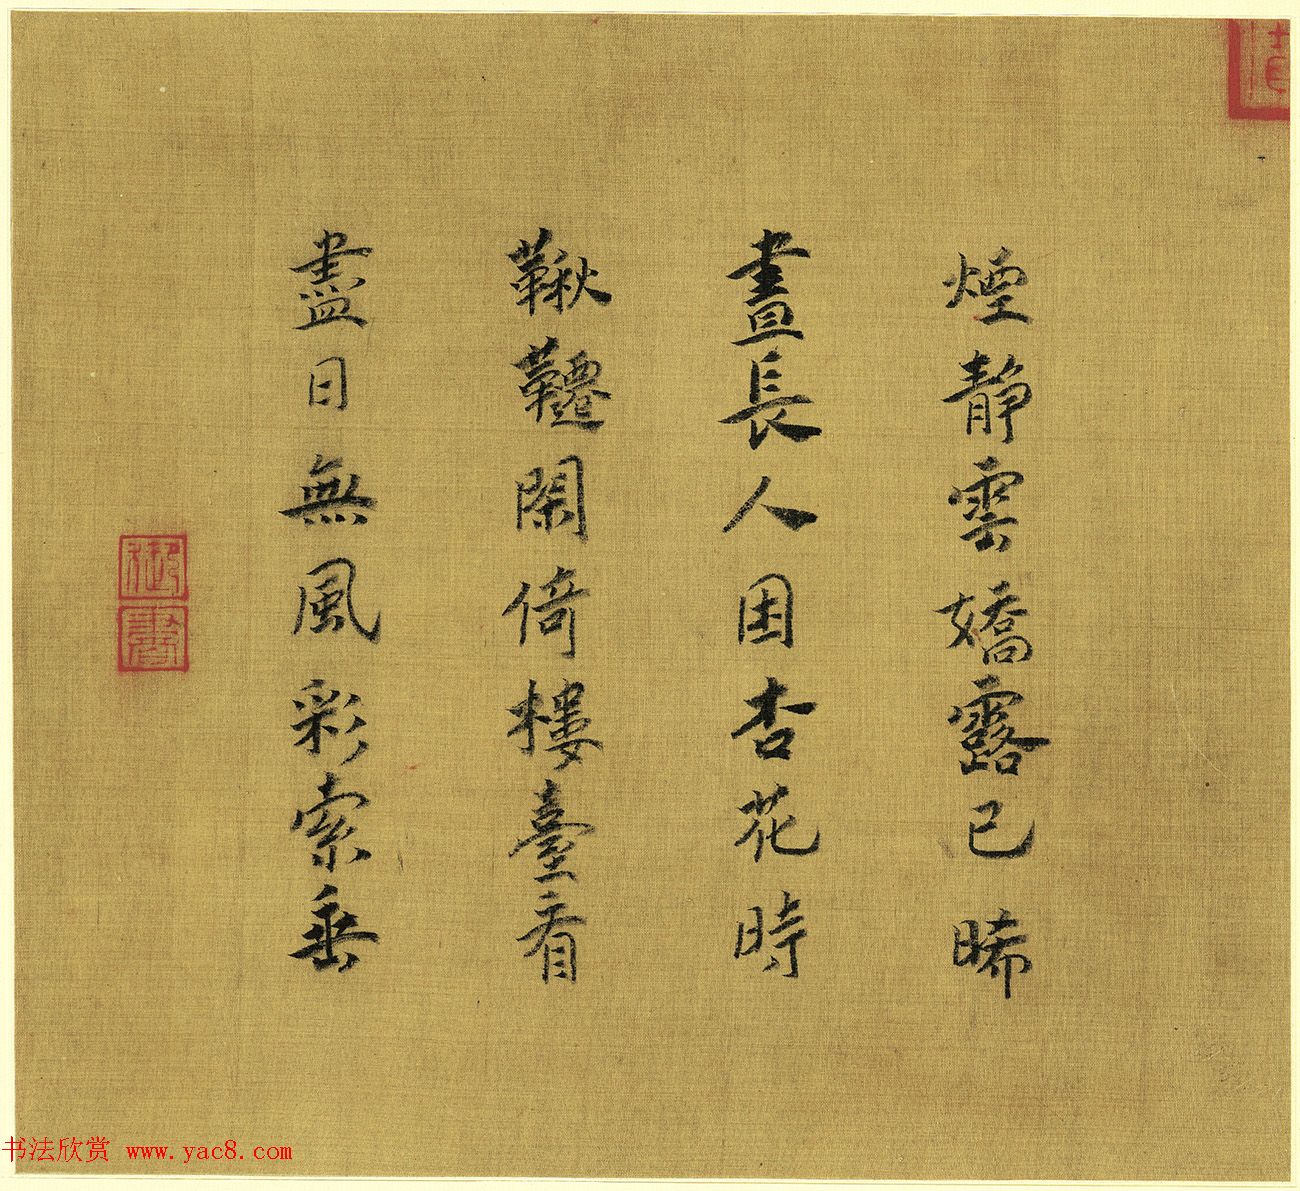 煙靜雲嬌露已晞
晝長人困杏花時
鞦韆閑倚樓臺看
盡日無風彩索垂
御書
书法欣赏 www.yac8.com